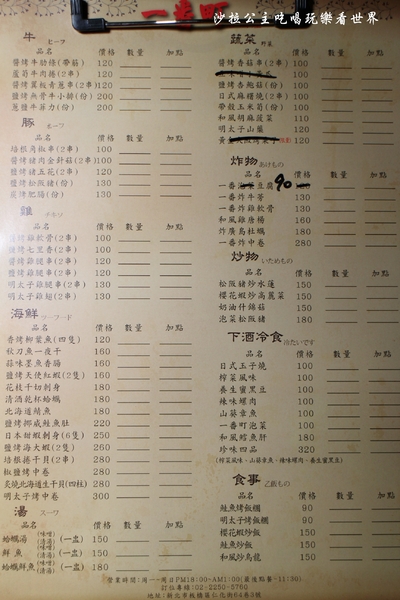 沙拉公主吃喝玩樂看世界
一番町
牛 ビーフ
品名 價格 數量 加點
醬烤牛肋條(帶筋) 120
蘆筍牛肉捲(2串) 120
醬烤翼板青蔥串(2串) 120
鹽烤無骨牛小排(份) 200
蔥鹽牛菲力(份) 200
豚 ポーフ
品名 價格 數量 加點
培根角椒串(2串) 100
醬烤豬肉金針菇(2串) 100
鹽烤豬五花(2串) 120
鹽烤松阪豬(份) 130
醬烤肥腸(份) 130
雞 チキソ
品名 價格 數量 加點
雞軟骨(2串) 100
鹽烤七里香(2串) 100
醬烤雞腿串(2串) 120
鹽烤雞腿串(2串) 120
明太子雞腿串(2串) 130
明太子雞翅(2串) 130
海鮮 シーフード
品名 價格 數量 加點
香烤柳葉魚(四隻) 120
秋刀魚一夜干 160
蒜味墨魚香腸 160
鹽烤天使紅蝦(2隻) 160
花枝千切刺身 180
清酒乾杯蛤蠣 180
北海道鯖魚 180
鹽烤挪威鮭魚肚 220
日本甜蝦刺身(6隻) 250
鹽烤海大蝦(2隻) 260
培根捲干貝(2串) 280
椒鹽烤中卷 280
炙燒北海道生干貝(四粒) 280
明太子烤中卷 300
湯 スープ
品名 價格 數量 加點
蛤蠣湯(味噌)(清湯)(一盅) 150
鮮魚(味噌)(清湯)(一盅) 150
蛤蠣鮮魚(味噌)(清湯)(一盅) 180
蔬菜 野菜
品名 價格 數量 加點
醬烤香菇串(2串) 120
鹽烤杏鮑菇(份) 100
日式麻糬燒(2串) 100
帶殼玉米筍(份) 100
和風胡麻菠菜 110
明太子山藥 120
120
炸物 あけもの
品名 價格 數量 加點
一番豆腐 90
一番炸牛蒡 130
一番炸雞軟骨 130
和風雞唐楊 160
炸廣島牡蠣 180
一番炸中卷 280
炒物 いためもの
品名 價格 數量 加點
松阪豬炒水蓮 150
櫻花蝦炒高麗菜 150
奶油什錦菇 150
泡菜松阪豬 180
下酒冷食 冷たいです
品名 價格 數量 加點
日式玉子燒 100
榨菜風味 100
養生蜜黑豆 100
辣味螺肉 100
山葵章魚 100
一番町泡菜 100
和風鱈魚肝 180
珍味四品 320
(榨菜風味、山葵章魚、辣味螺肉、養生蜜黑豆)
食事 ご飯もの
品名 價格 數量 加點
鮭魚烤飯糰 90
明太子烤飯糰 90
櫻花蝦炒飯 150
鮭魚炒飯 150
和風炒烏龍 150
營業時間:周一~周日PM18:00~AM1:00(最後點餐-11:50)
訂位專線:02-2250-5760
地址:新北市板橋區仁化街64巷3號